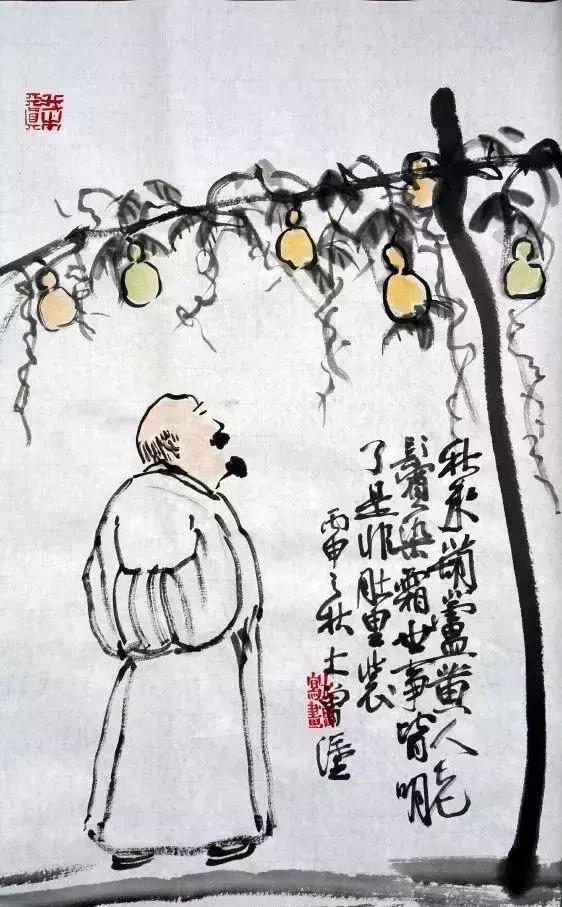 秋来葫蘆黄人老
鬢染霜世事皆明
了是非肚里装
丙申之秋大曾塗